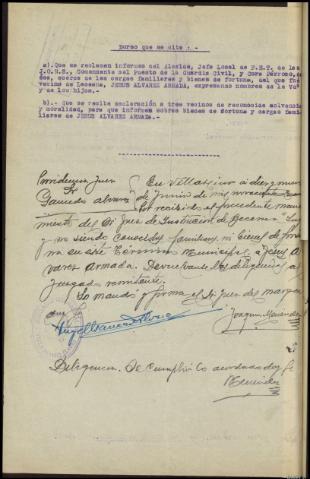 burso que se cita : . -
a). Que se reclamen informes del Alcalde, Jefe Local de F.E.T. de las
J.O.N.S., Comandante del Puesto de la Guardia Civil, y Cura Párroco,
acerca de las cargas familiares y bienes de fortuna, del que fué
vecino de JESUS ALVAREZ ARMADA, expresando nombres de la Vdª
y de los hijos.-
b).- Que se reciba declaración a tres vecinos de reconocida solvencia
y moralidad, para que informen sobre bienes de fortuna y cargas fami
liares de JESUS ALVAREZ ARMADA.-
Providencia Juez
Sr En Villa a diez y nueve
Alvarez de Junio de mil novecientos
por recibido el precedente manda
miento del Sr Juez de Instrucción de Becerreá
y no siendo conocidos familiares, ni bienes de for
en este Término Municipal, a Jesus Al
varez Armada. Devuelvanse las diligencias al
Juzgado remitente.
Lo mandó y firma el Sr Juez del margen
doy
Joaquin
Diligencia. Se cumplió lo acordado doy fe